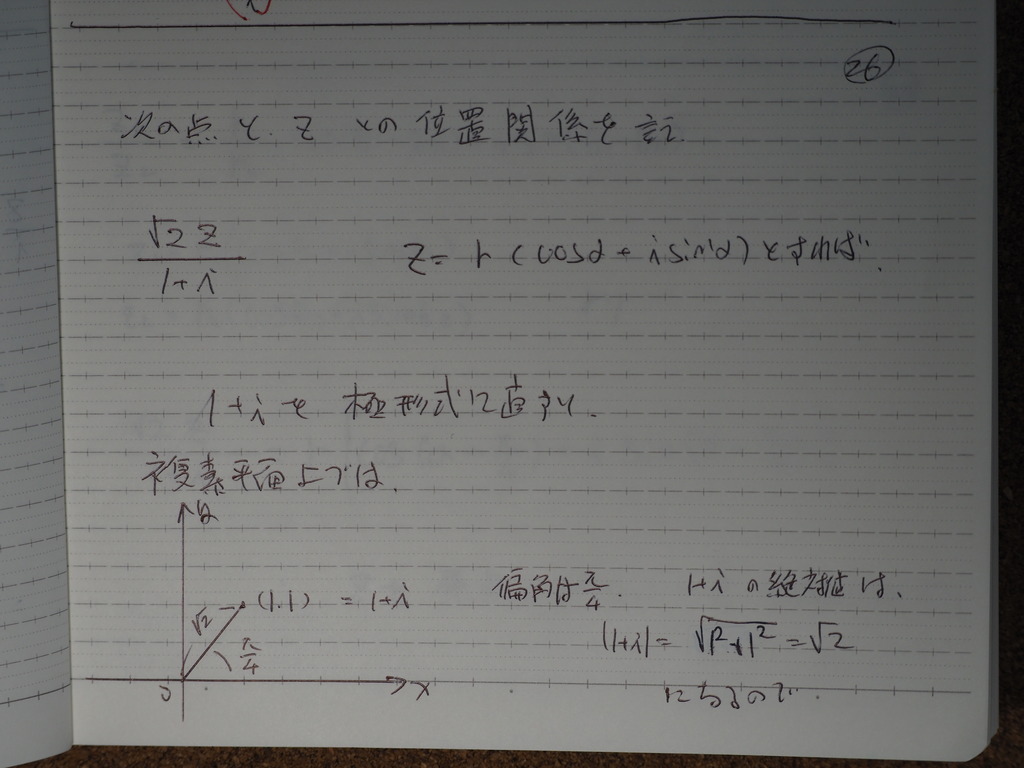 26
次の点と、z との位置関係を言え.
√2 z / 1+i
z = r (cosα + i sinα) とすれば、
1+i を 極形式に直すと、
複素平面上では、
y
(1,1) = 1+i
√2
π/4
0
x
偏角は π/4.
1+i の絶対値は、
|1+i| = √1²+1² = √2
になるので、